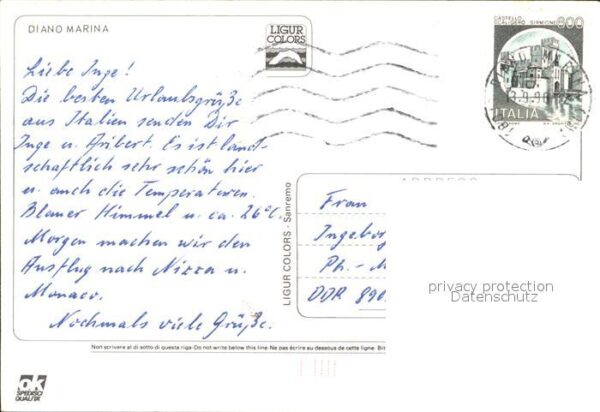 DIANO MARINA
LIGUR
COLORS
CASTELLO
SCALIGERO SIRMIONE 800
ITALIA
Liebe Inge!
Die besten Urlaubsgrüße
aus Italien senden Dir
Inge u. Aribert. Es ist land-
schaftlich sehr schön hier
u. auch die Temperaturen.
Blauer Himmel u. ca. 26°C.
Morgen machen wir den
Ausflug nach Nizza u.
Monaco.
Nochmals viele Grüße.
LIGUR COLORS - Sanremo
Frau
Ingebor
Ph.-M
DDR 890
privacy protection
Datenschutz
Non scrivere al di sotto di questa riga-Do not write below this line-Ne pas écrire au dessous de cette ligne. Bit
ok
SPEDISCI
QUALITA'